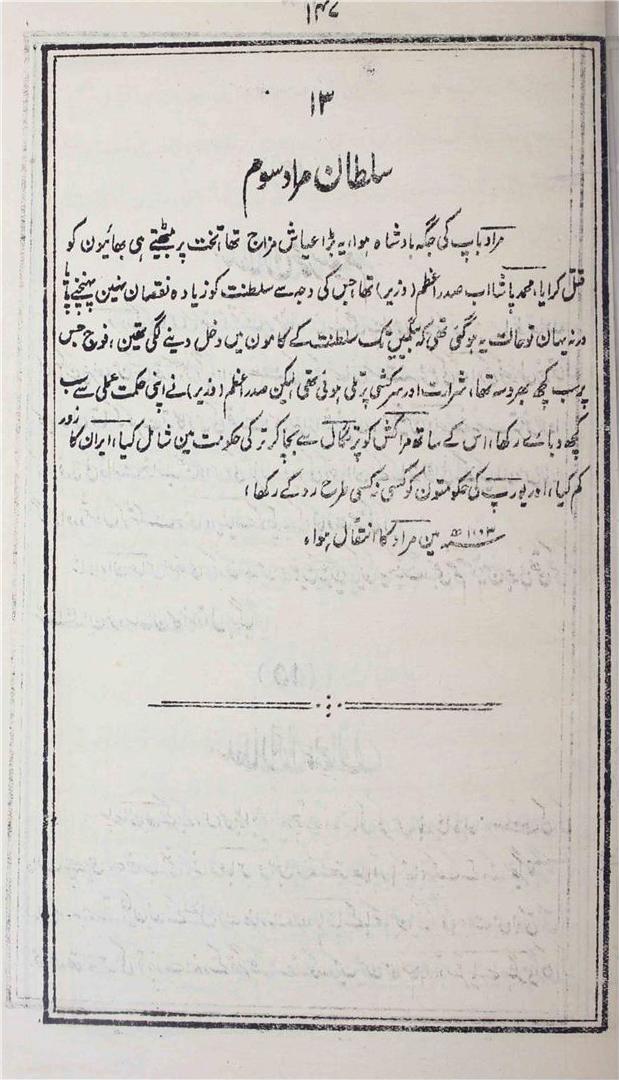 ۱۴۷
۱۳
سلطان مراد سوم
مراد باپ کی جگہ بادشاہ ہوا، یہ بڑا عیاش مزاج تھا، تخت پر بیٹھتے ہی بھائیون کو
قتل کرایا، محمد پاشا اب صدر اعظم (وزیر) تھا، جس کی وجہ سے سلطنت کو زیادہ نقصان نہین پہنچنے پایا
ورنہ یہان تو حالت یہ ہو گئی تھی کہ بیگمیں تک سلطنت کے کامون میں دخل دینے لگی تھین، فوج جس
پر سب کچھ بھروسہ تھا، شرارت اور سرکشی پر تلی ہوئی تھی لیکن صدر اعظم (وزیر) نے اپنی حکمت عملی سے سب
کچھ دبائے رکھا، اس کے ساتھ مراکش کو پرتگال سے بچا کر ترکی حکومت مین شامل کیا، ایران کا زور
کم کیا، اور یورپ کی حکومتون کو کسی نہ کسی طرح روکے رکھا،
۱۰۰۳ھ مین مراد کا انتقال ہوا،